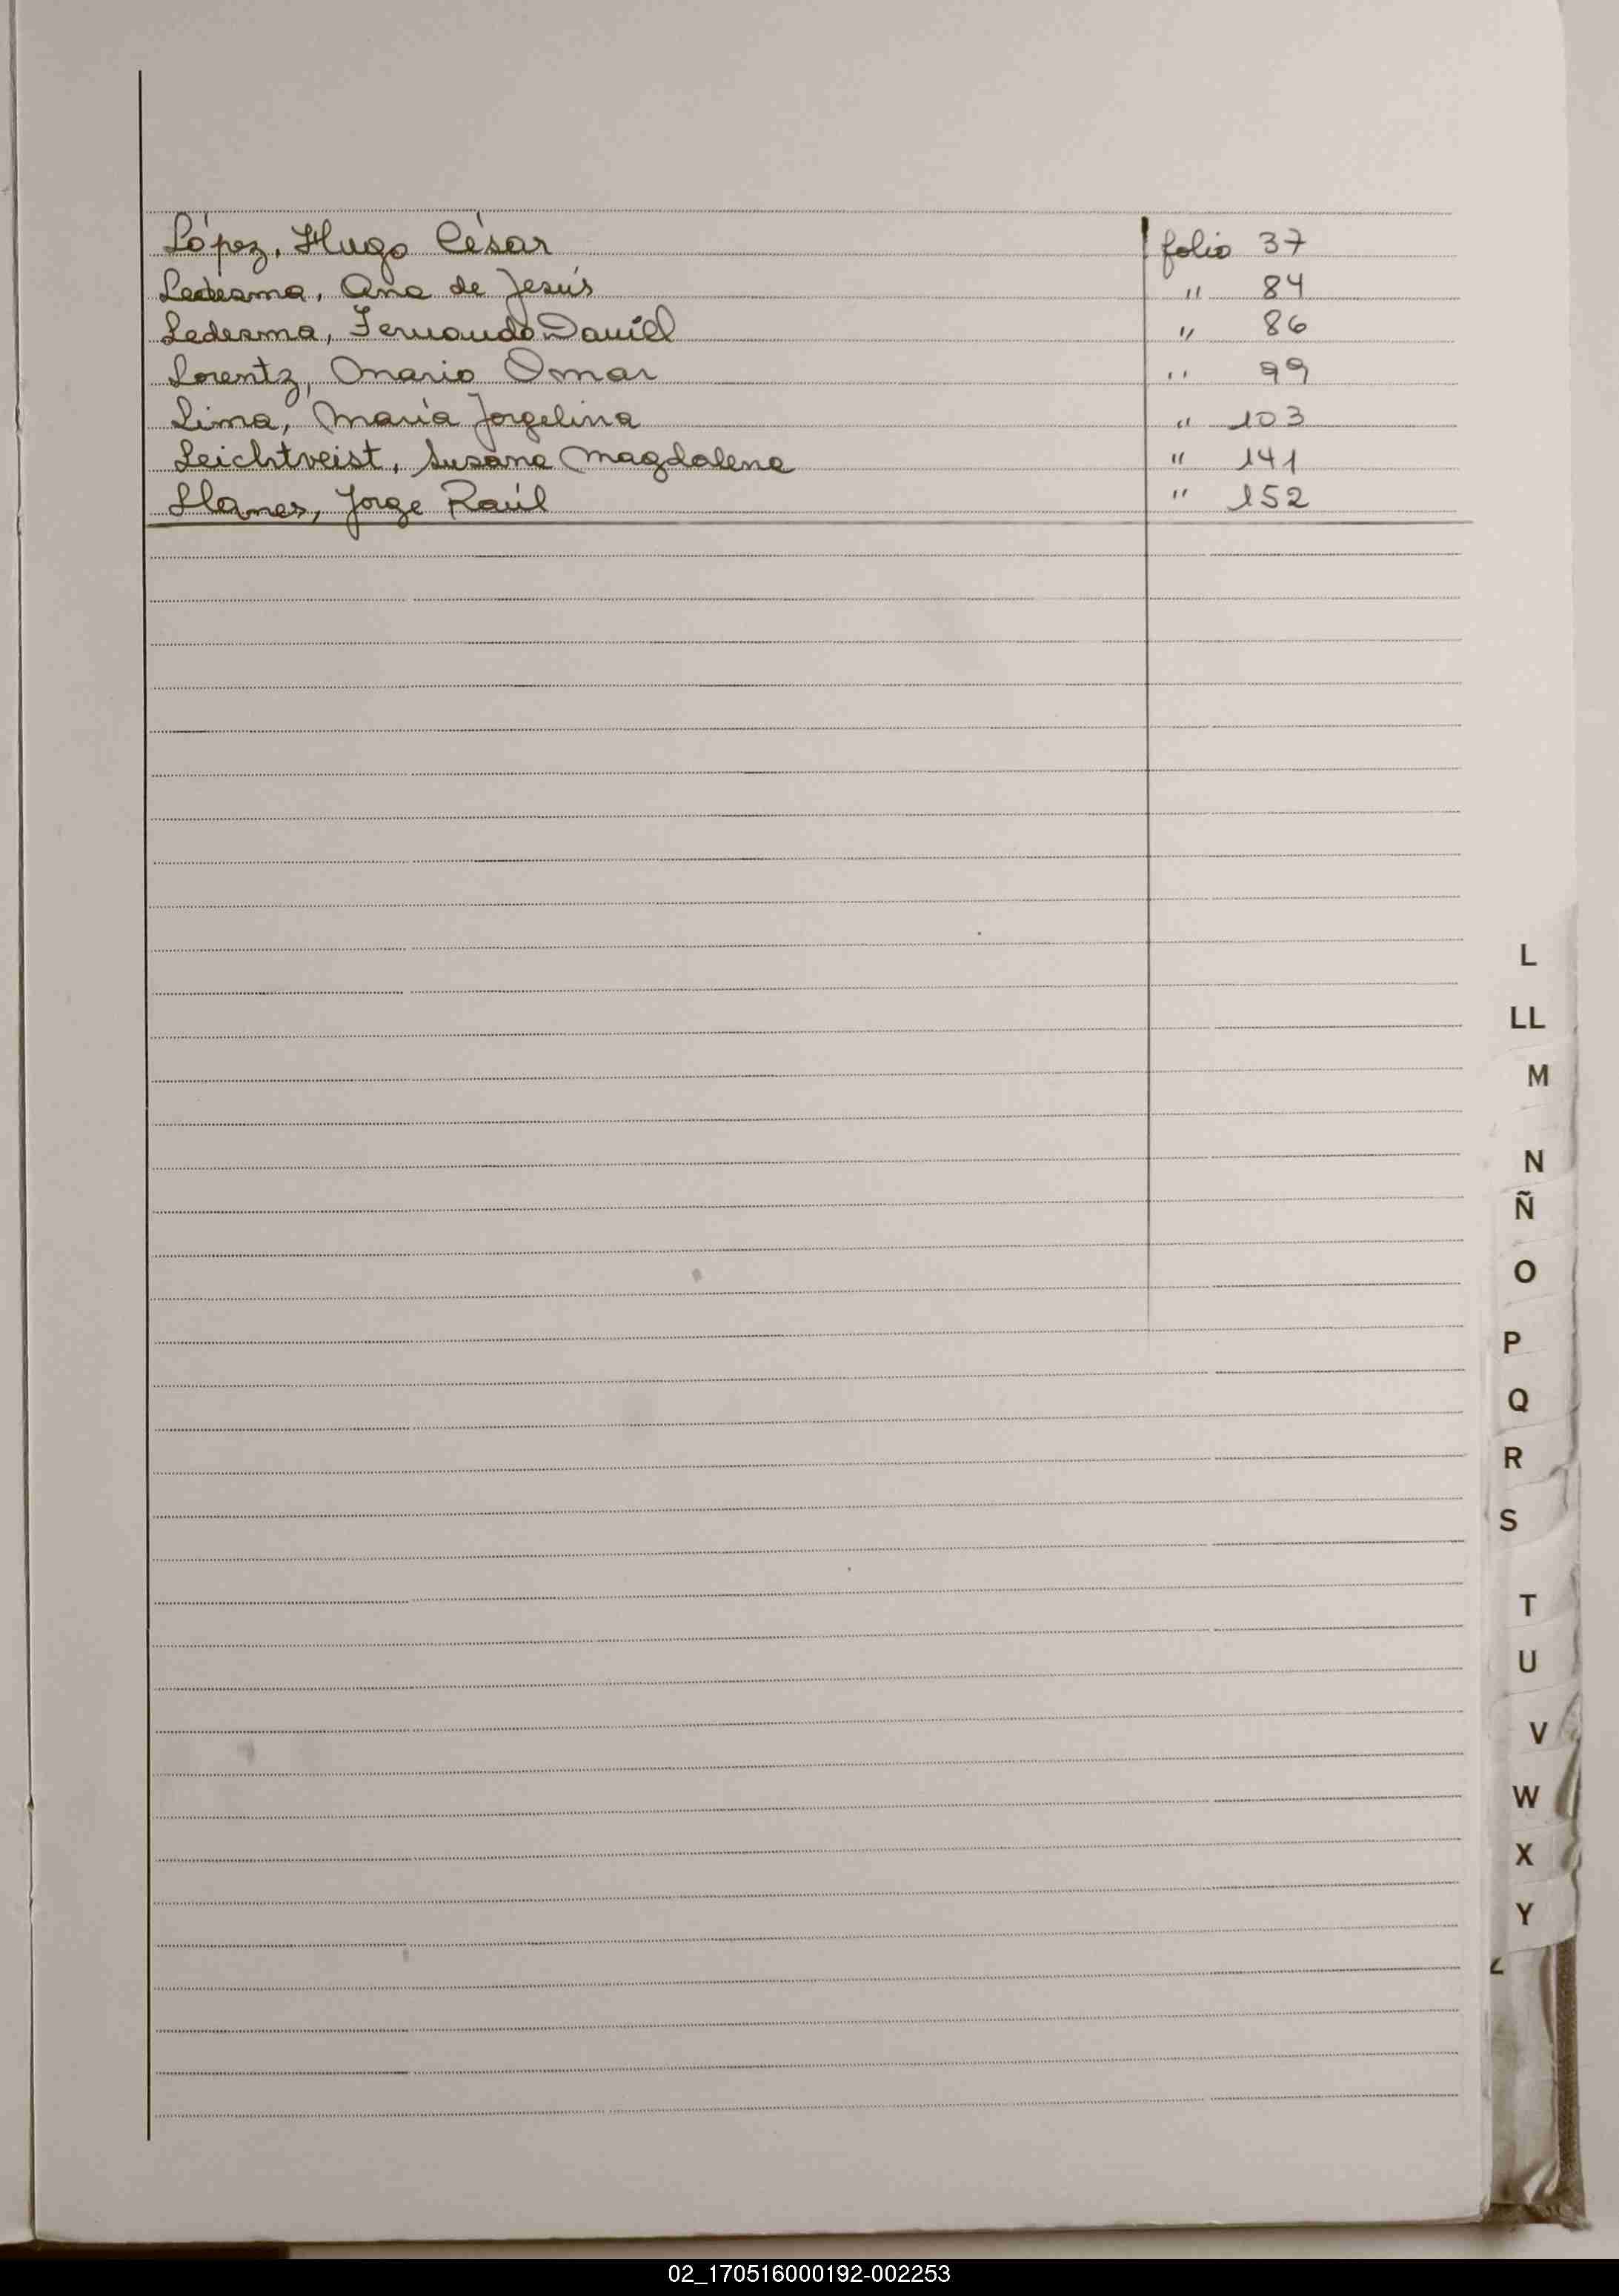 López, Hugo César folio 37
Ledesma, Ana de Jesús " 84
Ledesma, Fernando Daniel " 86
Lorentz, Mario Omar " 99
Lima, María Jorgelina " 103
Leichtveist, Susana Magdalena " 141
Llanes, Jorge Raúl " 152
L
LL
M
N
Ñ
O
P
Q
R
S
T
U
V
W
X
Y
Z
02_170516000192-002253